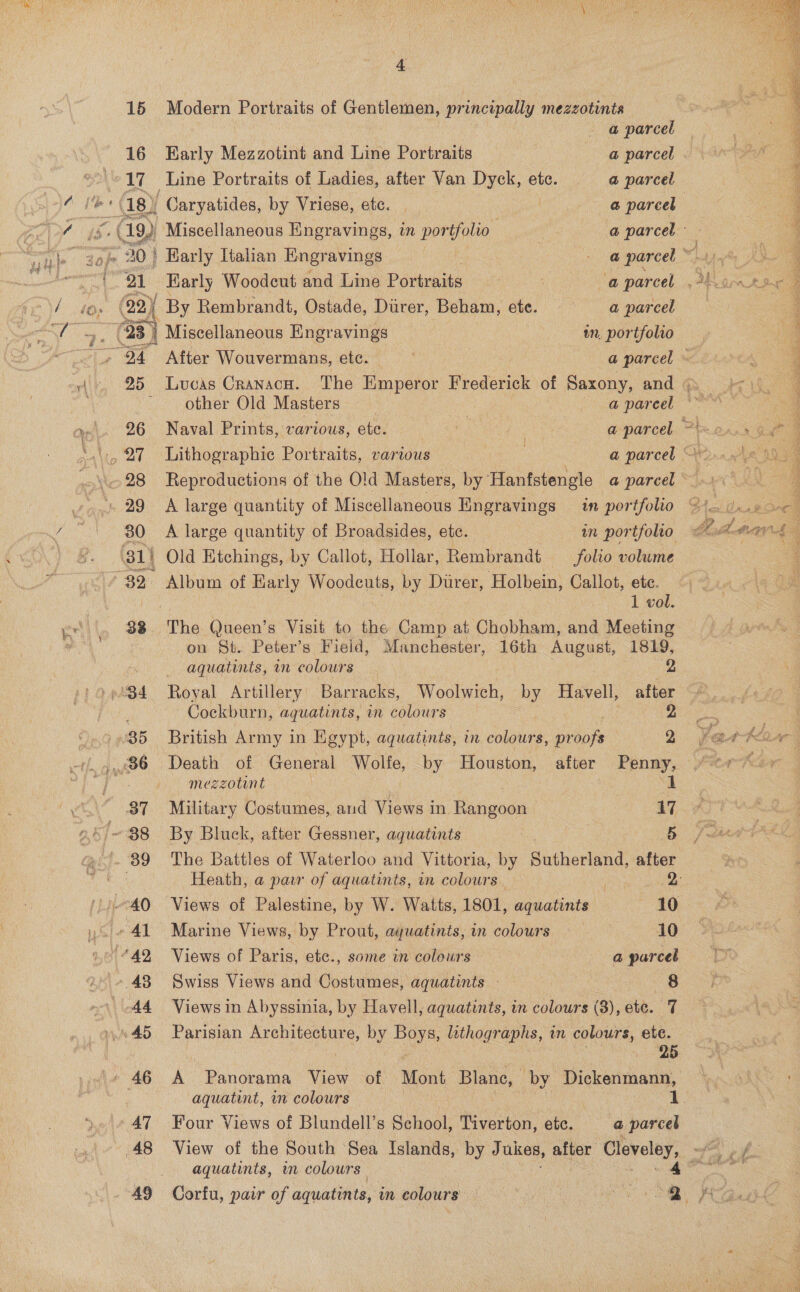 4
15 Modern Portraits of Gentlemen, principally mezzotints
a parcel
16 Early Mezzotint and Line Portraits a parcel
17 Line Portraits of Ladies, after Van Dyck, etc. a parcel
18 Caryatides, by Vriese, etc. a parcel
19 Miscellaneous Engravings, in portfolio a parcel
20 Early Italian Engravings a parcel
21 Early Woodcut and Line Portraits a parcel
22 By Rembrandt, Ostade, Dürer, Beham, etc. a parcel
23 Miscellaneous Engravings in portfolio
24 After Wouvermans, etc. a parcel
25 Lucas Cranach. The Emperor Frederick of Saxony, and
other Old Masters a parcel
26 Naval Prints, various, etc. a parcel
27 Lithographic Portraits, various a parcel
28 Reproductions of the Old Masters, by Hanfstengle a parcel
29 A large quantity of Miscellaneous Engravings in portfolio
30 A large quantity of Broadsides, etc. in portfolio
31 Old Etchings, by Callot, Hollar, Rembrandt folio volume
32 Album of Early Woodcuts, by Dürer, Holbein, Callot, etc.
1 vol.
33 The Queen's Visit to the Camp at Chobham, and Meeting
on St. Peter's Field, Manchester, 16th August, 1819,
aquatints, in colours 2
34 Royal Artillery Barracks, Woolwich, by Havell, after
Cockburn, aquatints, in colours 2
35 British Army in Egypt, aquatints, in colours, proofs 2
36 Death of General Wolfe, by Houston, after Penny,
mezzotint 1
37 Military Costumes, and Views in Rangoon 17
38 By Bluck, after Gessner, aquatints 5
39 The Battles of Waterloo and Vittoria, by Sutherland, after
Heath, a pair of aquatints, in colours 2
40 Views of Palestine, by W. Watts, 1801, aquatints 10
41 Marine Views, by Prout, aquatints, in colours 10
42 Views of Paris, etc., some in colours a parcel
43 Swiss Views and Costumes, aquatints 8
44 Views in Abyssinia, by Havell, aquatints, in colours (3), etc. 7
45 Parisian Architecture, by Boys, lithographs, in colours, etc.
25
46 A Panorama View of Mont Blanc, by Dickenmann,
aquatint, in colours 1
47 Four Views of Blundell's School, Tiverton, etc. a parcel
48 View of the South Sea Islands, by Jukes, after Cleveley,
aquatints, in colours 4
49 Corfu, pair of aquatints, in colours 2